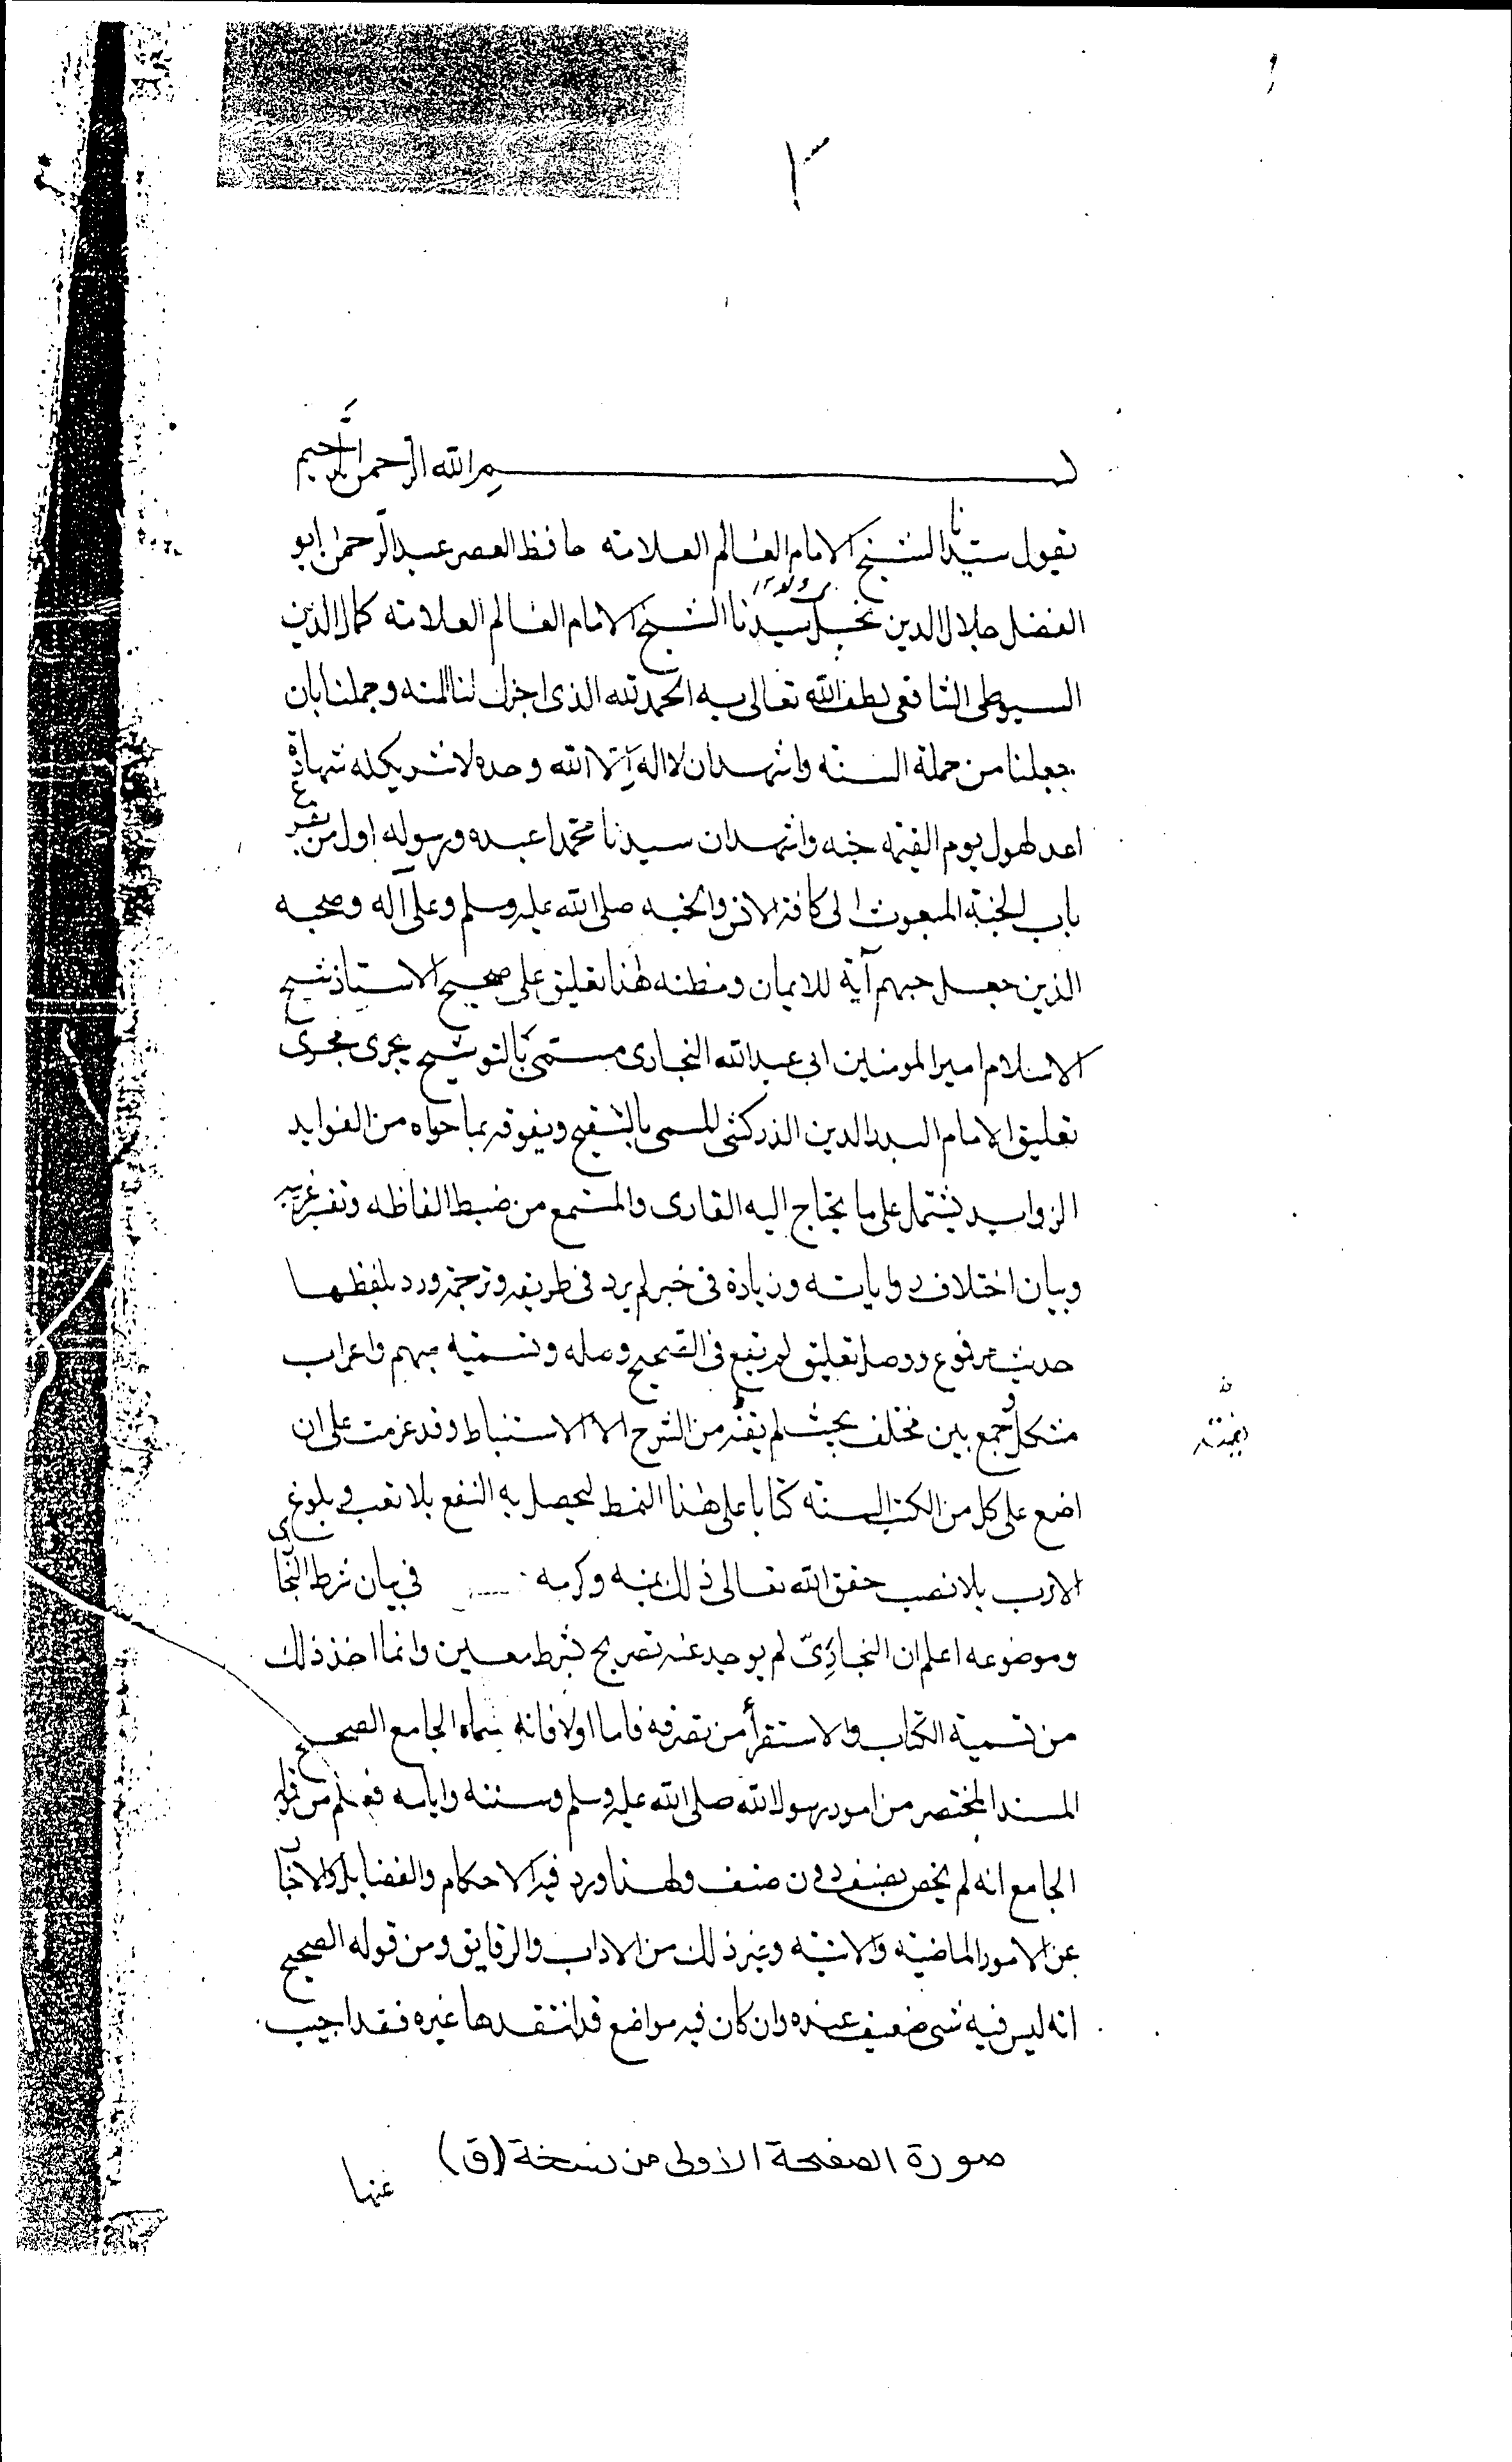 ٢
بسم الله الرحمن الرحيم
يقول سيدنا الشيخ الامام العالم العلامة حافظ العصر عبد الرحمن ابو
الفضل جلال الدين نجل سيدنا الشيخ الامام العالم العلامة كمال الدين
السيوطي الشافعي لطف الله تعالى به الحمد لله الذي اجزل لنا المنه وجملنا بان
جعلنا من حملة السنه واشهد ان لا اله الا الله وحده لا شريك له شهادة
اعدها لهول يوم القيمه جنه واشهد ان سيدنا محمدا عبده ورسوله اول من يقرع
باب الجنة المبعوث الى كافة الانس والجنه صلى الله عليه وسلم وعلى آله وصحبه
الذين جعل حبهم آية للايمان ومظنه هذا تعليق على صحيح الاستاذ شيخ
الاسلام امير المومنين ابى عبد الله البخارى مسمى بالتوشيح يجرى مجرى
تعليق الامام البدر الدين الزركشى المسمى بالتنقيح ويفوقه بما حواه من الفوايد
الزوايد يشتمل على ما يحتاج اليه القارى والمستمع من ضبط الفاظه وتفسير غريبه
وبيان اختلاف رواياته وزيادة فى خبر لم يرد فى طريقه وترجمة ورد بلفظها
حديث مرفوع ووصل تعليق لم يقع فى الصحيح وصله وتسمية مبهم واعراب
مشكل وجمع بين مختلف بحيث لم يفته من الشرح الا الاستنباط وقد عزمت على ان
اضع على كل من الكتب الستة كتابا على هذا النمط ليحصل به النفع بلا تعب و بلوغ
الارب بلا نصب حقق الله تعالى ذلك بمنه وكرمه فى بيان شرط البخارى
وموضوعه اعلم ان البخارىّ لم يوجد عنه تصريح بشرط معين وانما اخذ ذلك
من تسمية الكتاب والاستقرأ من تصرفه فاما اولا فانه سماه الجامع الصحيح
المسند المختصر من امور رسول الله صلى الله عليه وسلم وسننه وايامه فعلم من قوله
الجامع انه لم يخص بصنف دون صنف ولهذا اورد فيه الاحكام والفضايل والاخبار
عن الامور الماضية والاتية وغير ذلك من الاداب والرقايق ومن قوله الصحيح
انه ليس فيه شى ضعيف عنده وان كان فيه مواضع قد انتقدها غيره فقد اجيب
عنها
صورة الصفحة الأولى من نسخة (ق)